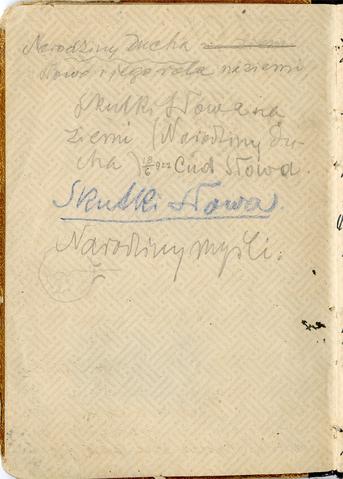 Narodziny Ducha
Słowo i jego rola na ziemi
Skutki Słowa na
ziemi (Narodziny Du-
cha) 18/6 922 Cud Słowa.
Skutki Słowa.
Narodziny myśli.